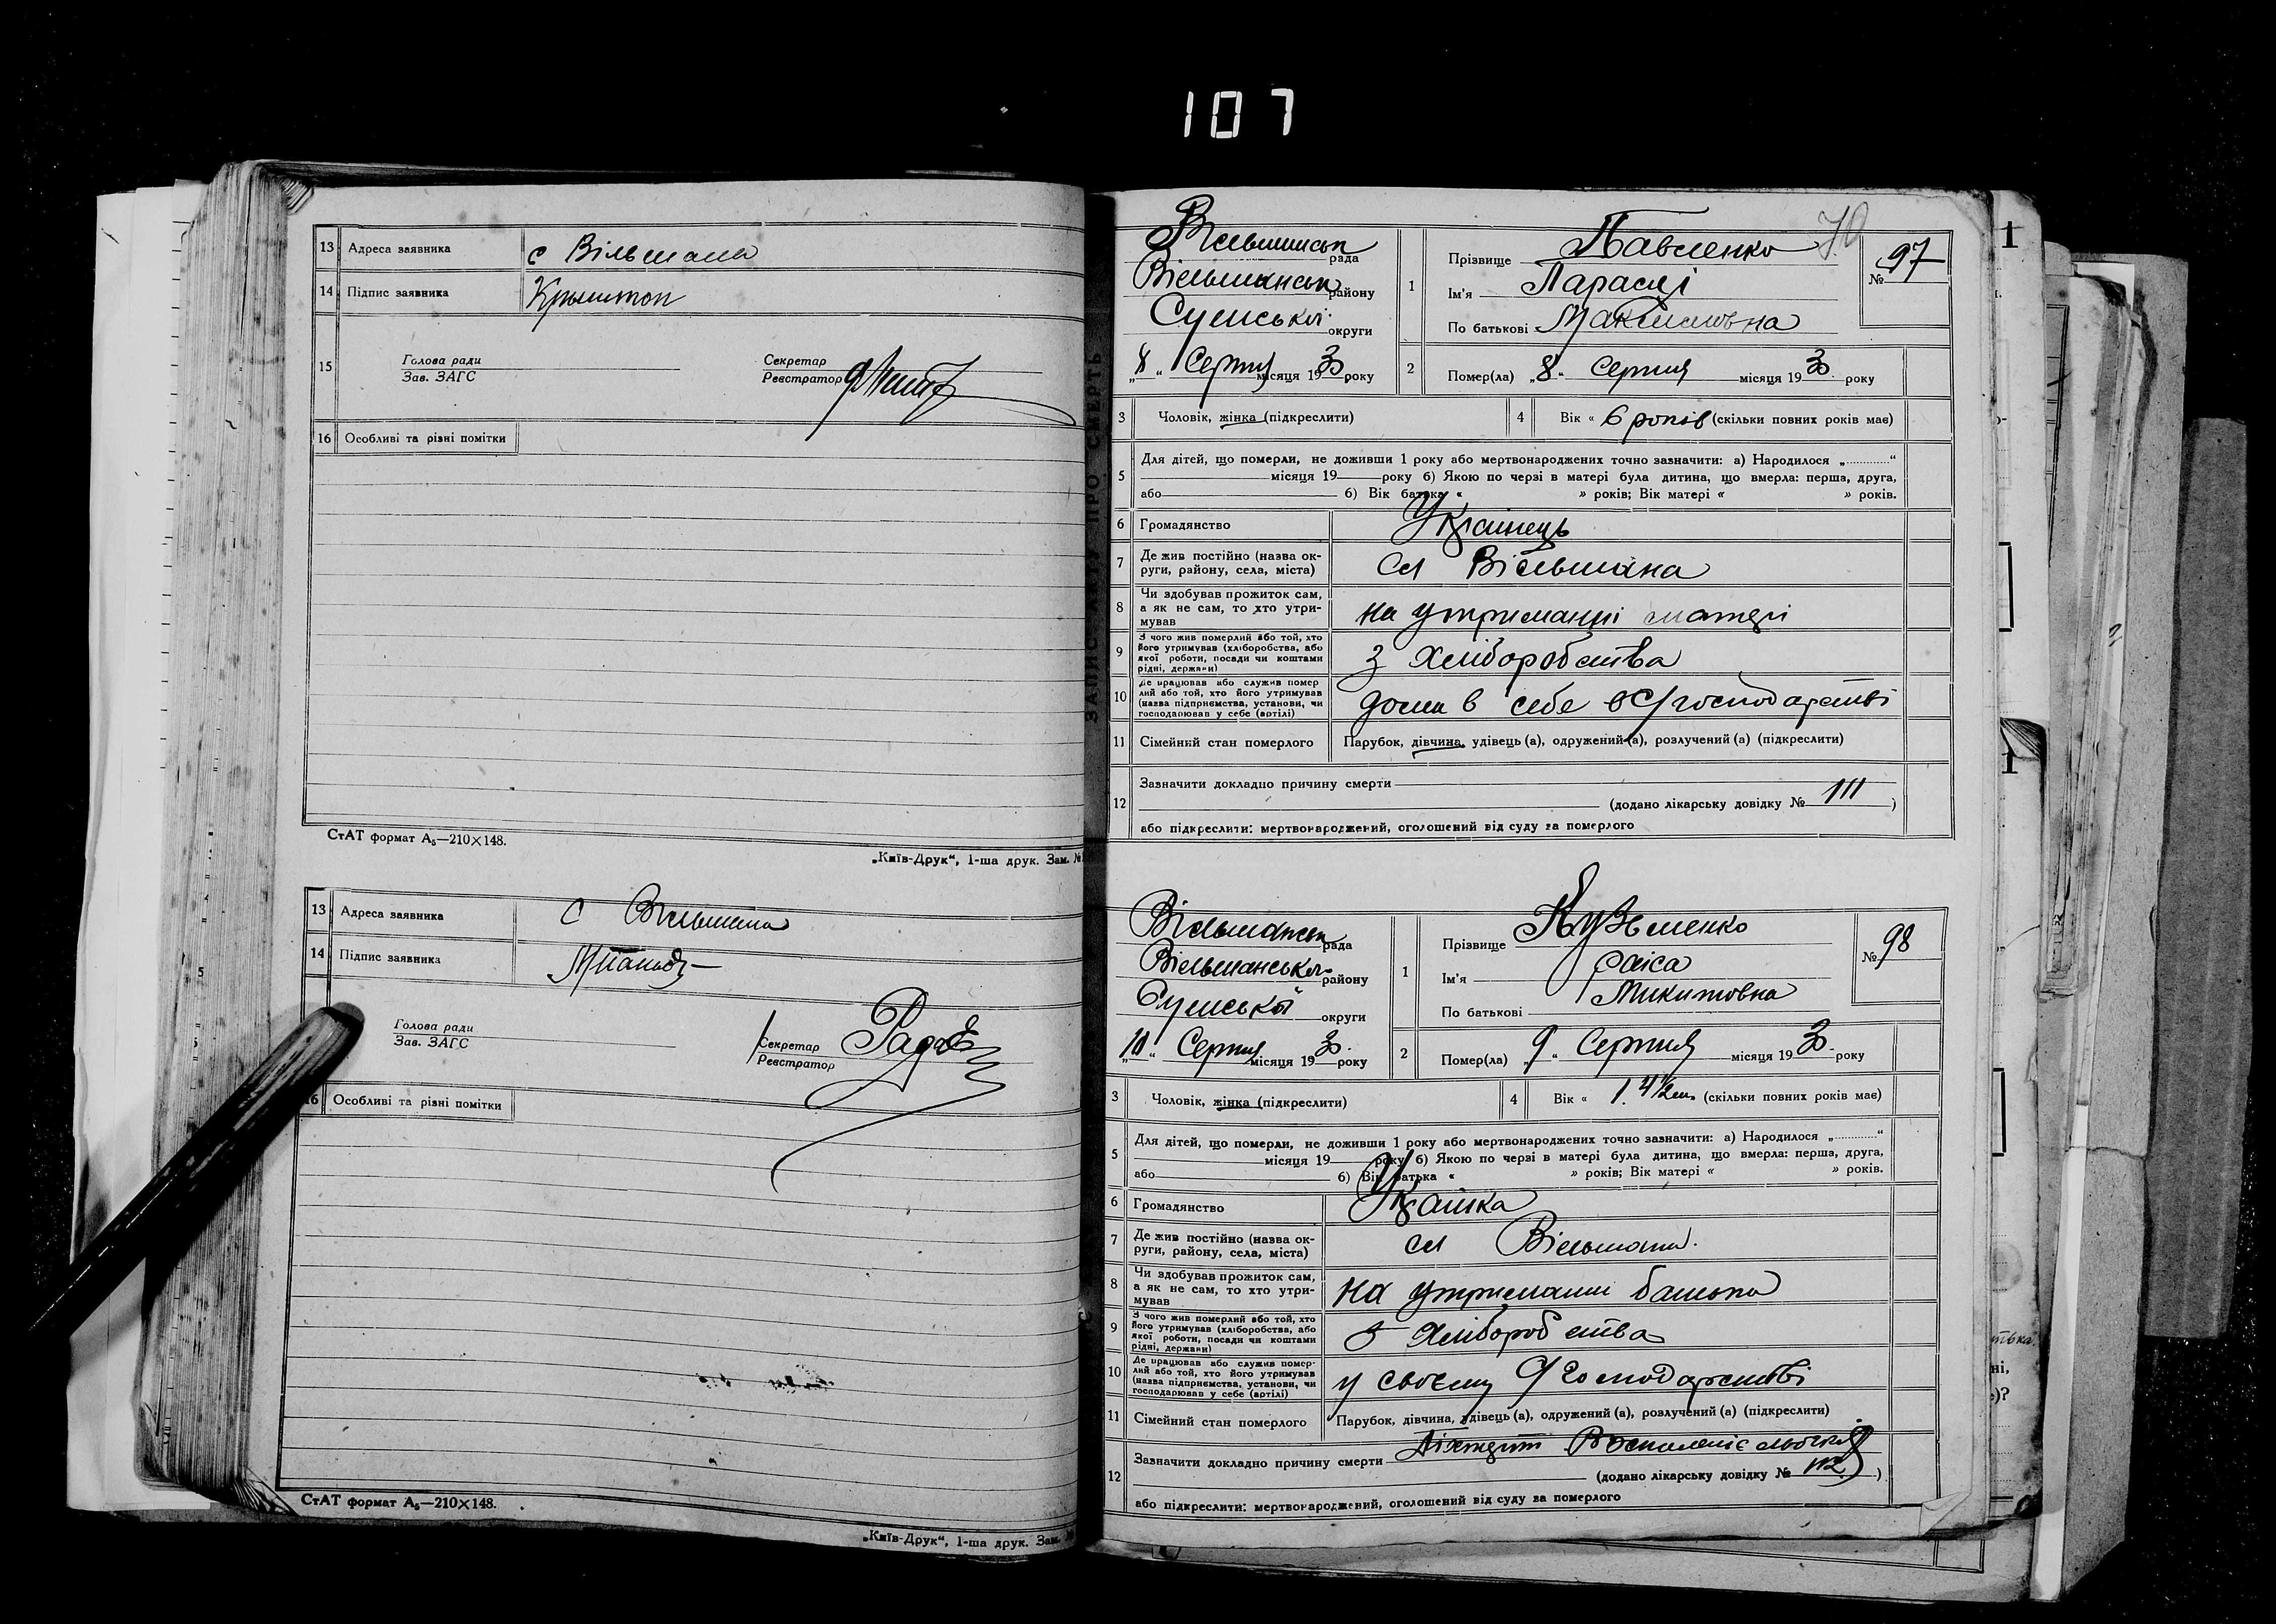 107
13 Адреса заявника с Вільшана
14 Підпис заявника
15 Голова ради
Зав. ЗАГС
Секретар
Реєстратор
16 Особливі та різні помітки
СтАТ формат А₅—210×148.
„Київ-Друк“, 1-ша друк. Зам. №
13 Адреса заявника с Вільшана
14 Підпис заявника
Голова ради
Зав. ЗАГС
Секретар
Реєстратор
16 Особливі та різні помітки
СтАТ формат А₅—210×148.
„Київ-Друк“, 1-ша друк. Зам.
ЗАПИС ПРО СМЕРТЬ
70
Вільшанськ рада
Вільшанськ району
Сумської округи
„8“ Серпня місяця 1930 року
1 Прізвище Павленко
Ім'я Параскі
По батькові Максимовна
№ 97
2 Помер(ла) „8“ Серпня місяця 1930 року
3 Чоловік, жінка (підкреслити)
4 Вік « 6 років (скільки повних років має)
5 Для дітей, що померли, не доживши 1 року або мертвонароджених точно зазначити: а) Народилося „............“
місяця 19 року б) Якою по черзі в матері була дитина, що вмерла: перша, друга,
або б) Вік батька « » років; Вік матері « » років.
6 Громадянство Українець
7 Де жив постійно (назва округи, району, села, міста) сл Вільшана
8 Чи здобував прожиток сам,
а як не сам, то хто утри-
мував на утриманні матері
9 З чого жив померлий або той, хто
його утримував (хліборобства, або
якої роботи, посади чи коштами
рідні, держави) з хліборобства
10 Де працював або служив помер
лий або той, хто його утримував
(назва підприємства, установи, чи
господарював у себе (артілі) дома в себе в с/господарстві
11 Сімейний стан померлого Парубок, дівчина, удівець (а), одружений (а), розлучений (а) (підкреслити)
12 Зазначити докладно причину смерти
(додано лікарську довідку № 111 )
або підкреслити: мертвонароджений, оголошений від суду за померлого
Вільшанськ рада
Вільшанської району
Сумської округи
„10“ Серпня місяця 1930 року
1 Прізвище Кузьменко
Ім'я Раіса
По батькові Микитовна
№ 98
2 Помер(ла) „9“ Серпня місяця 1930 року
3 Чоловік, жінка (підкреслити)
4 Вік « 1. 4½ (скільки повних років має)
5 Для дітей, що померли, не доживши 1 року або мертвонароджених точно зазначити: а) Народилося „............“
місяця 19 року б) Якою по черзі в матері була дитина, що вмерла: перша, друга,
або б) Вік батька « » років; Вік матері « » років.
6 Громадянство
7 Де жив постійно (назва ок-
руги, району, села, міста) сл Вільшана.
8 Чи здобував прожиток сам,
а як не сам, то хто утри-
мував на утриманні батька
9 З чого жив померлий або той, хто
його утримував (хліборобства, або
якої роботи, посади чи коштами
рідні, держави) з хліборобства
10 Де працював або служив помер-
лий або той, хто його утримував
(назва підприємства, установи, чи
господарював у себе (артілі) у своєму господарстві
11 Сімейний стан померлого Парубок, дівчина, удівець (а), одружений (а), розлучений (а) (підкреслити)
12 Зазначити докладно причину смерти
(додано лікарську довідку № 112 )
або підкреслити: мертвонароджений, оголошений від суду за померлого